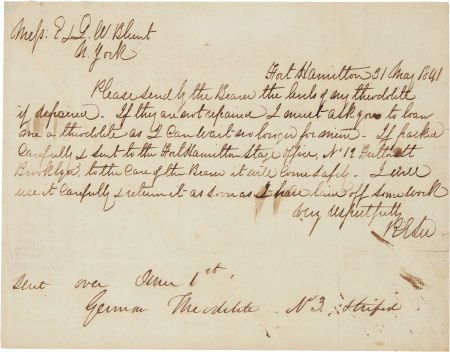 Messs: E & G. W. Blunt
N. York
Fort Hamilton 31 May 1841
Please send by the Bearer the limb of my theodolite
if repaired. If they are not repaired I must ask you to loan
me a theodolite as I can wait no longer for mine. If packed
carefully & sent to the Fort Hamilton Stage Office, No 19 Fulton St
Brooklyn, to the care of the Bearer it will come safely. I will
use it carefully & return it as soon as I have laid off some work
Very respectfully
R E Lee
Sent over June 1st,
German Theodolite No 3. Striped